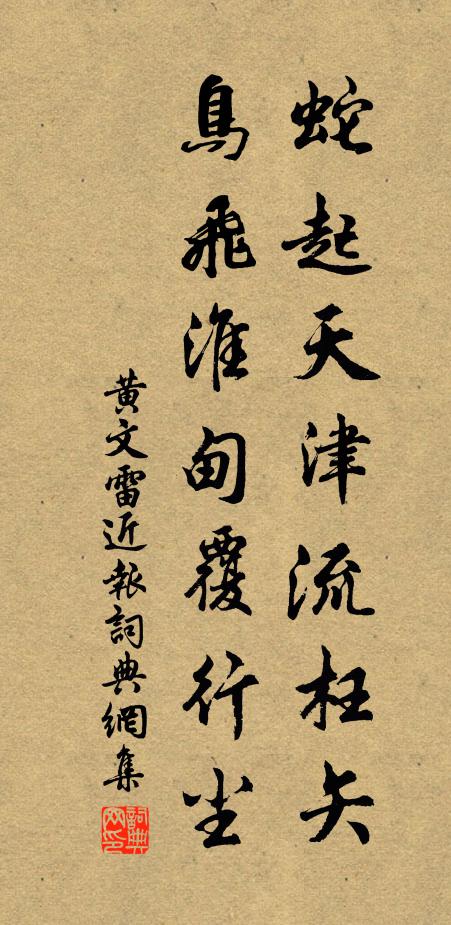 蛇起天津流枉矢
鳥飛淮甸覆行尘
黃文雷近報詞典網集
詞典網印